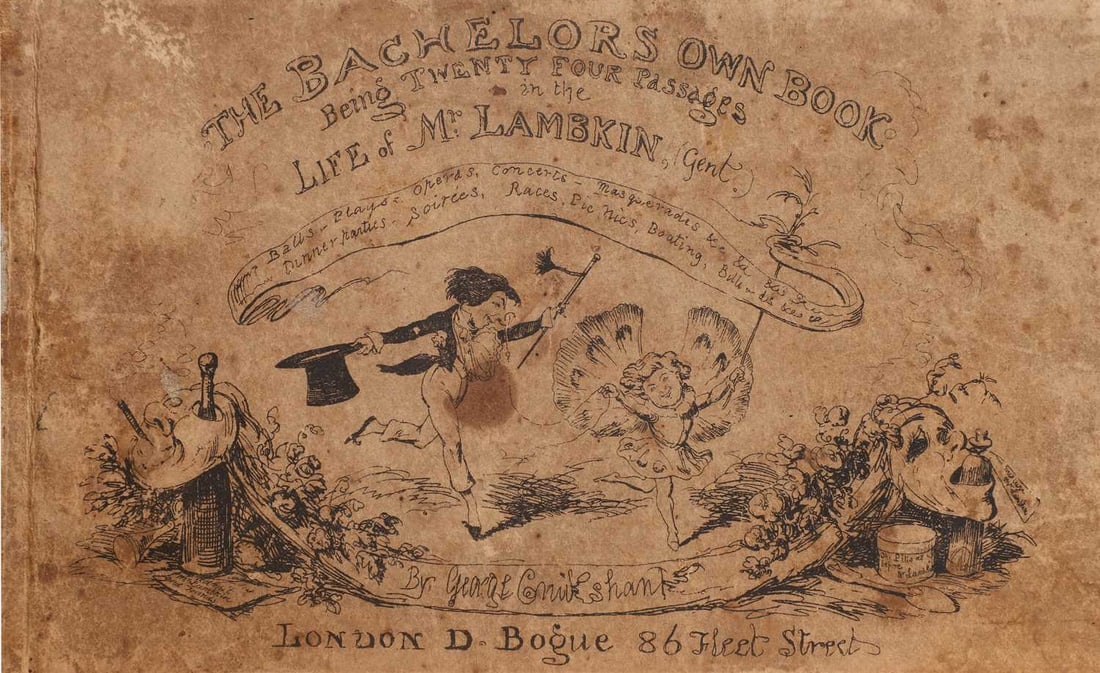 THE BACHELORS OWN BOOK.
Being TWENTY FOUR Passages
in the
LIFE of Mr. LAMBKIN, (Gent.)
Balls - Plays - Operas, Concerts - Masquerades &c &c
Dinner parties - Soirées, Races, Pic Nics, Boating, Balls
By George Cruikshank
LONDON D. Bogue 86 Fleet Street